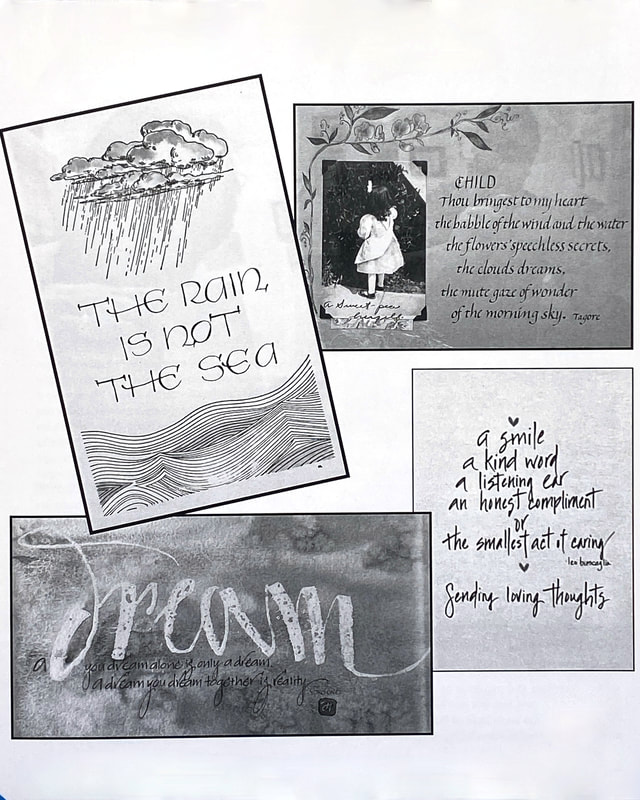 THE RAIN
IS NOT
THE SEA
CHILD
Thou bringest to my heart
the babble of the wind and the water
the flowers' speechless secrets,
the clouds dreams,
the mute gaze of wonder
of the morning sky. Tagore
a Sweet-pea
a smile
a kind word
a listening ear
an honest compliment
or
the smallest act of caring
leo buscaglia
Sending loving thoughts
a dream
you dream alone is only a dream.
a dream you dream together is reality
YOKO ONO